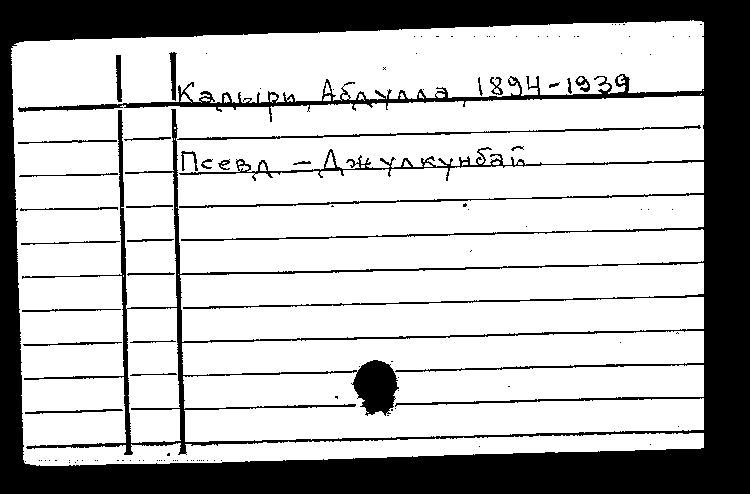 Кадыри, Абдулла, 1894-1939
Псевд. - Джулкунбай